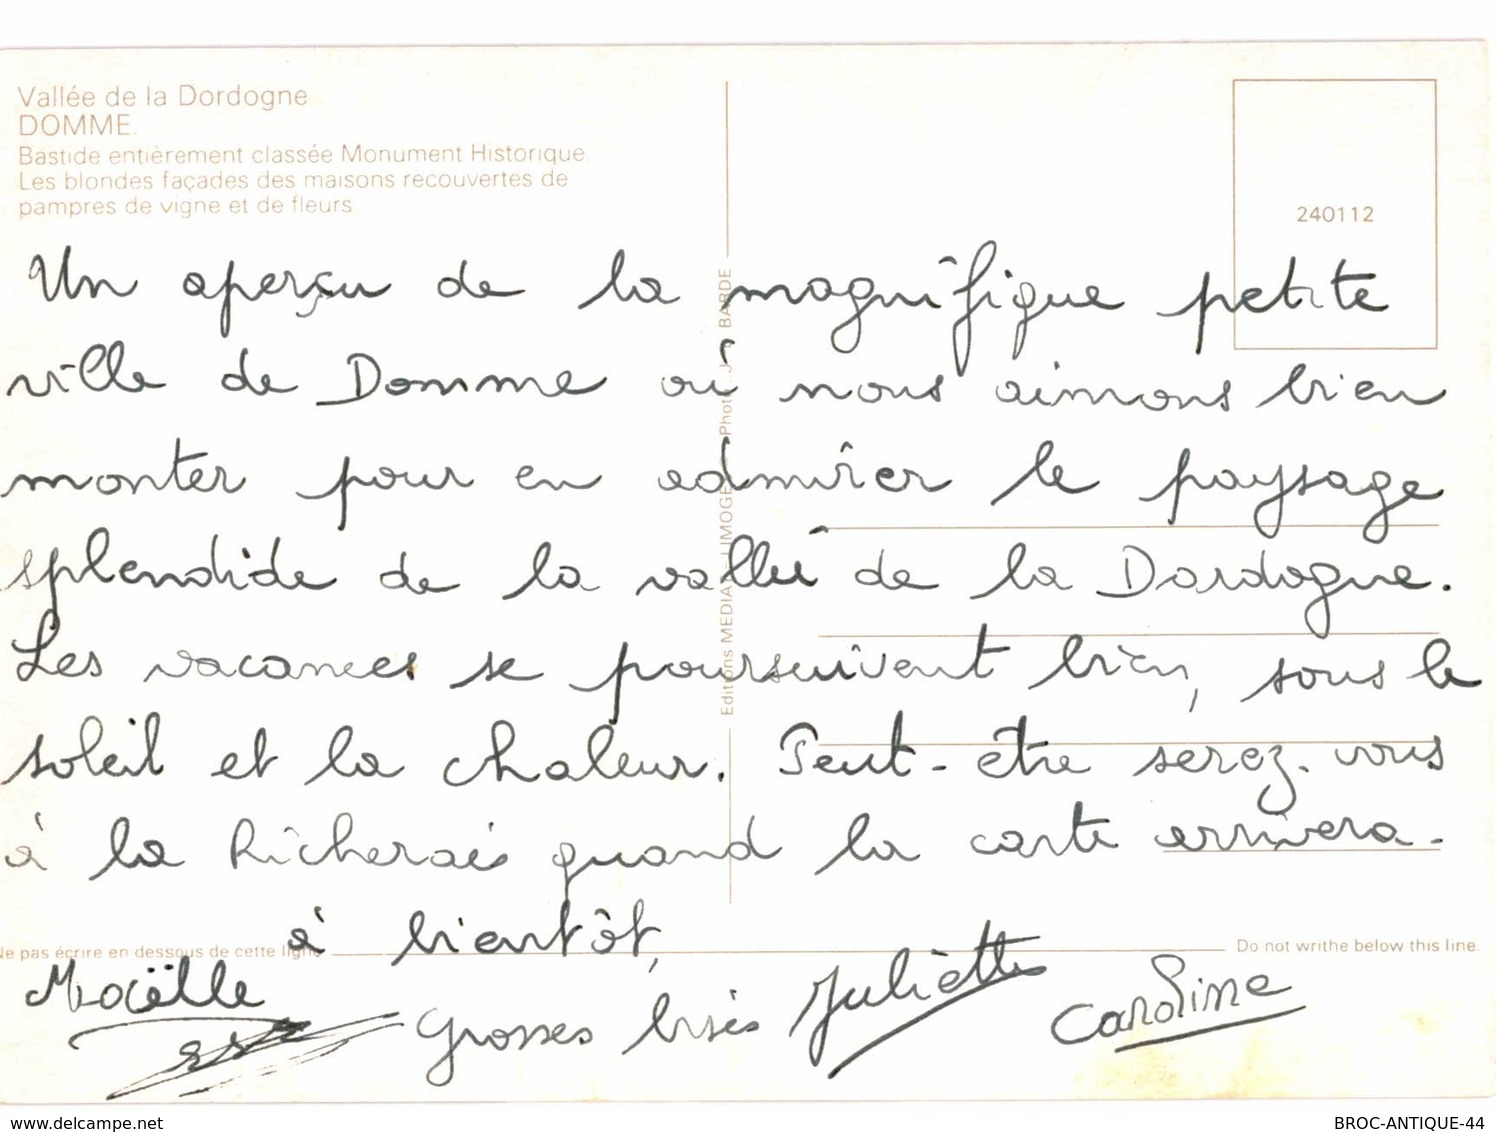 Vallée de la Dordogne
DOMME.
Bastide entièrement classée Monument Historique.
Les blondes façades des maisons recouvertes de
pampres de vigne et de fleurs.
240112
Un aperçu de la magnifique petite
ville de Domme où nous aimons bien
monter pour en admirer le paysage
splendide de la vallée de la Dordogne.
Les vacances se poursuivent bien, sous le
soleil et la chaleur. Peut-être serez-vous
à la Richerais quand la carte arrivera.
à bientôt,
Ne pas écrire en dessous de cette ligne
Do not writhe below this line.
Maëlle
Grosses bises
Juliette
Caroline
Editions MEDIA - LIMOGES
Photo J. BARDE
delcampe.net
BROC-ANTIQUE-44